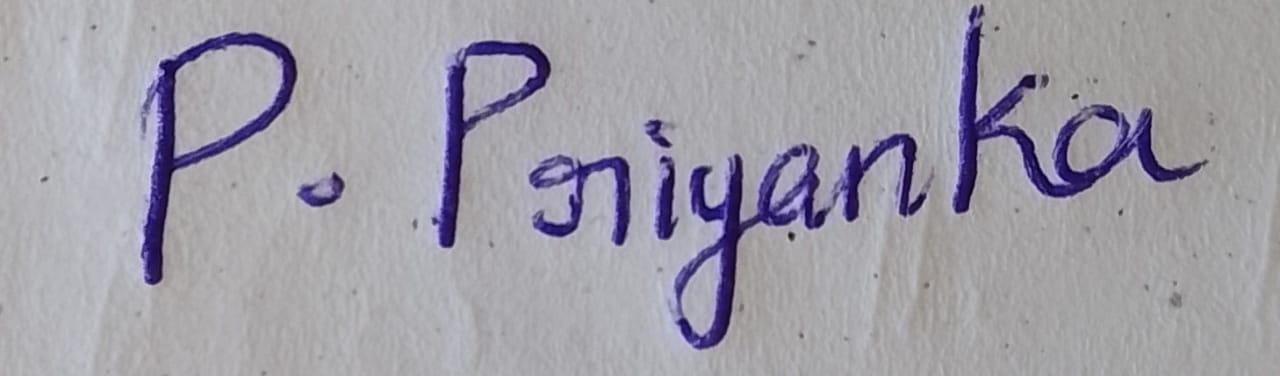 P. Priyanka